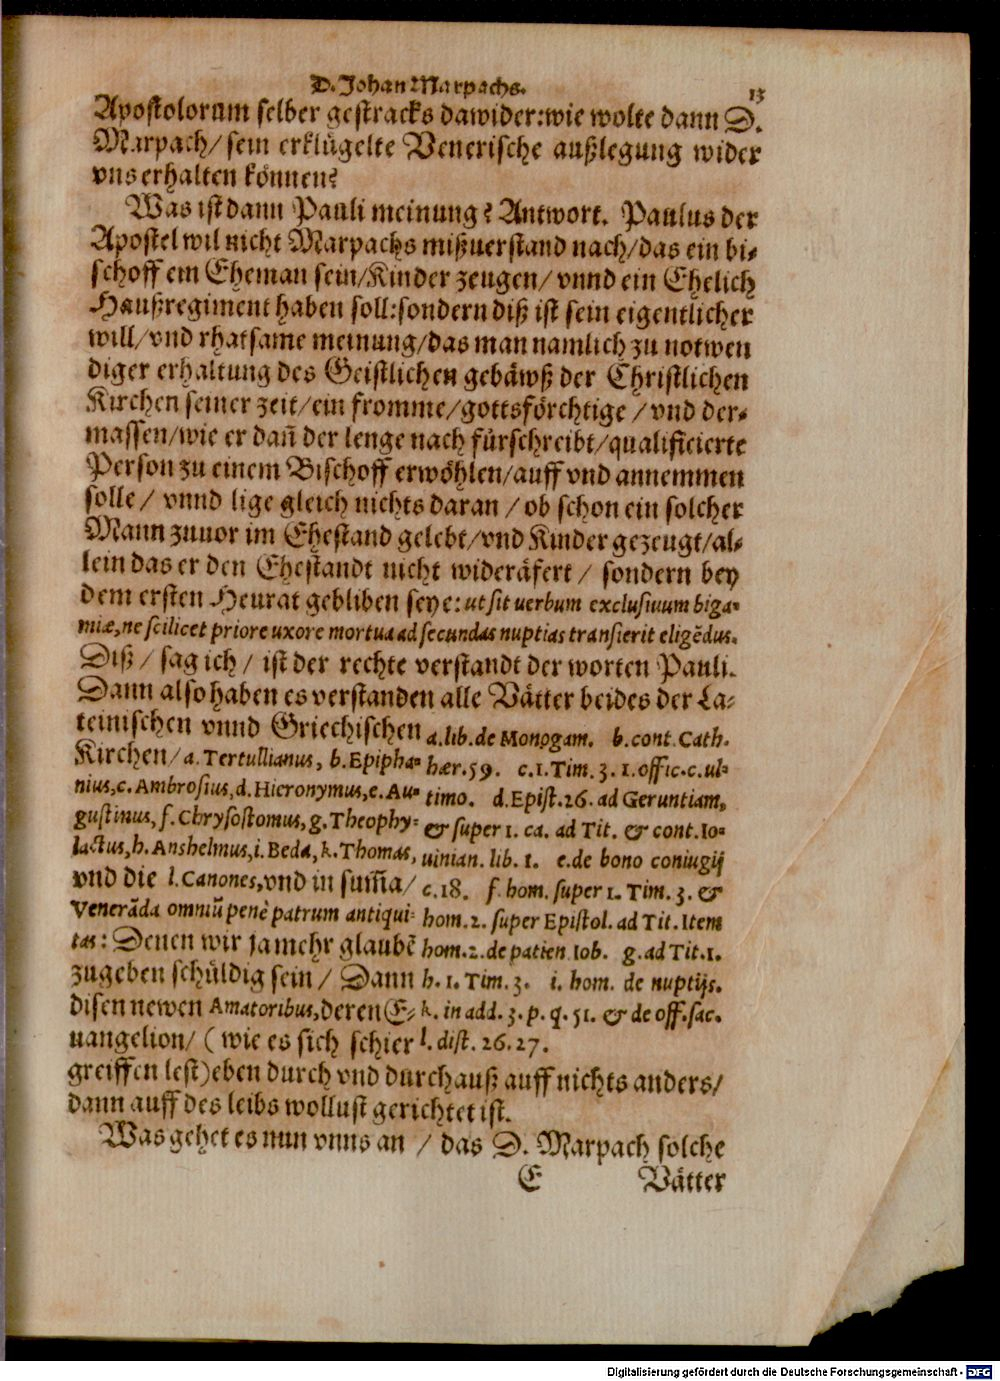 D. Johan Marpachs. 13
Apostolorum selber gestracks dawider: wie wolte dann D.
Marpach/ sein erklügelte Venerische außlegung wider
vns erhalten können?
Was ist dann Pauli meinung? Antwort. Paulus der
Apostel wil nicht Marpachs mißuerstand nach/ das ein bi-
schoff ein Eheman sein/ Kinder zeugen/ vnnd ein Ehelich
Haußregiment haben soll: sondern diß ist sein eigentlicher
will/ vnd rhatsame meinung/ das man namlich zu notwen
diger erhaltung des Geistlichen gebäwß der Christlichen
Kirchen seiner zeit/ ein fromme/ gottsförchtige/ vnd der-
massen/ wie er dañ der lenge nach fürschreibt/ qualificierte
Person zu einem Bischoff erwöhlen/ auff vnd annemmen
solle/ vnnd lige gleich nichts daran/ ob schon ein solcher
Mann zuuor im Ehestand gelebt/ vnd Kinder gezeugt/ al-
lein das er den Ehestandt nicht wideräfert/ sondern bey
dem ersten Heurat gebliben seye: ut sit uerbum exclusiuum biga-
miæ, ne scilicet priore uxore mortua ad secundas nuptias transierit eligẽdus.
Diß/ sag ich/ ist der rechte verstandt der worten Pauli.
Dann also haben es verstanden alle Vätter beides der La-
teinischen vnnd Griechischen
Kirchen/ a. Tertullianus, b. Epipha-
nius, c. Ambrosius, d. Hieronymus, e. Au-
gustinus, f. Chrysostomus, g. Theophy-
lactus, h. Anshelmus, i. Beda, k. Thomas,
vnd die l. Canones, vnd in sum̃a/
Venerãda omniũ penè patrum antiqui-
tas: Denen wir ja mehr glaubẽ
zugeben schüldig sein/ Dann
disen newen Amatoribus, deren E-
uangelion/ (wie es sich schier
a. lib. de Monogam. b. cont. Cath.
hær. 59. c. 1. Tim. 3. 1. offic. c. ul-
timo. d. Epist. 26. ad Geruntiam,
& super 1. ca. ad Tit. & cont. Io-
uinian. lib. 1. e. de bono coniugij
c. 18. f. hom. super 1. Tim. 3. &
hom. 2. super Epistol. ad Tit. Item
hom. 2. de patien Iob. g. ad Tit. 1.
h. 1. Tim. 3. i. hom. de nuptijs.
k. in add. 3. p. q. 51. & de off. sac.
l. dist. 26. 27.
greiffen lest) eben durch vnd durchauß auff nichts anders/
dann auff des leibs wollust gerichtet ist.
Was gehet es nun vnns an/ das D. Marpach solche
E Vätter
Digitalisierung gefördert durch die Deutsche Forschungsgemeinschaft - DFG